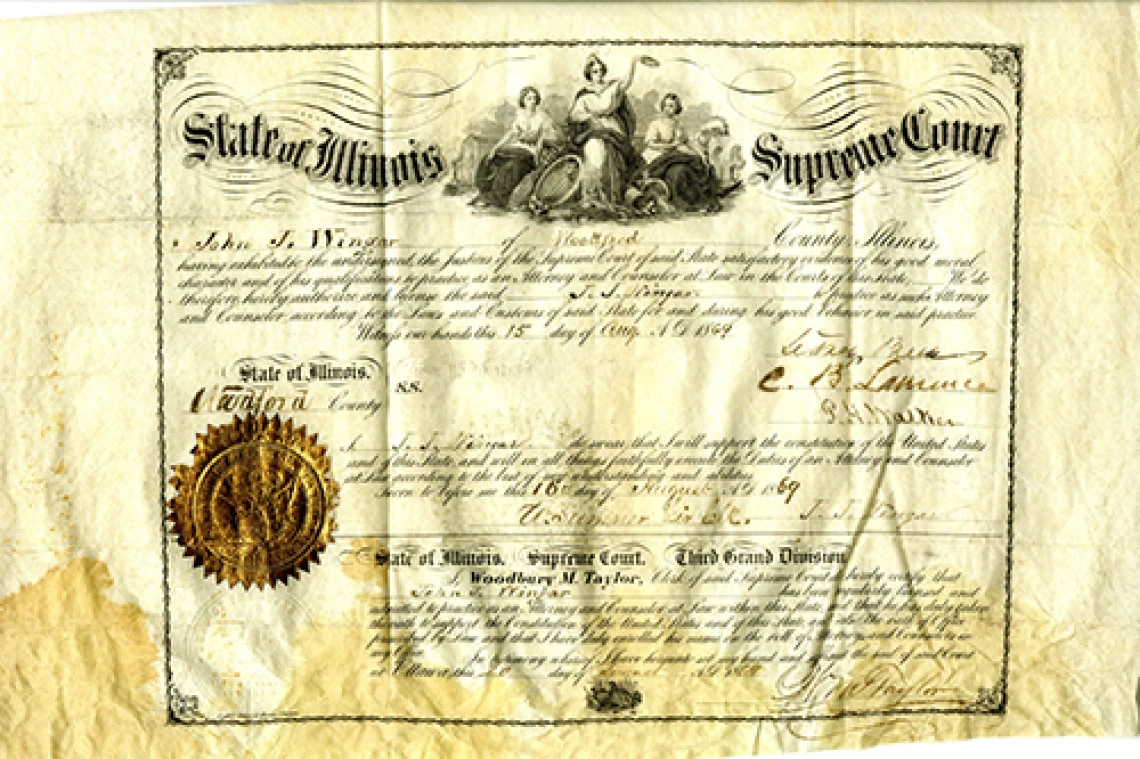 State of Illinois Supreme Court
John J. Wingar of Woodford County, Illinois,
having exhibited to the undersigned, the Justices of the Supreme Court of said State satisfactory evidence of his good moral
character and of his qualifications to practice as an Attorney and Counselor at Law in the Courts of this State, We do
therefore hereby authorize and license the said J. J. Wingar to practice as such Attorney
and Counselor according to the Laws and Customs of said State for and during his good behavior in said practice
Witness our hands this 15 day of Aug. A.D. 1869
C. B. Lawrence
P. H. Walker
State of Illinois.
Woodford County SS.
I J. J. Wingar do swear that I will support the constitution of the United States
and of this State, and will in all things faithfully execute the Duties of an Attorney and Counselor
at Law according to the best of my understanding and abilities
Sworn to before me this 16 day of August A.D. 1869
J. J. Wingar
State of Illinois. Supreme Court. Third Grand Division
I, Woodbury M. Taylor, Clerk of said Supreme Court do hereby certify that
John J. Wingar has been regularly licensed and
admitted to practice as an Attorney and Counselor at Law within this State and that he has duly taken
the oath to support the Constitution of the United States and of this State and also the oath of Office
prescribed by Law and that I have duly enrolled his name on the roll of Attorneys and Counselors in
my Office
In testimony whereof I have hereunto set my hand and the seal of said Court
at Ottawa this day of August A.D.
W M Taylor